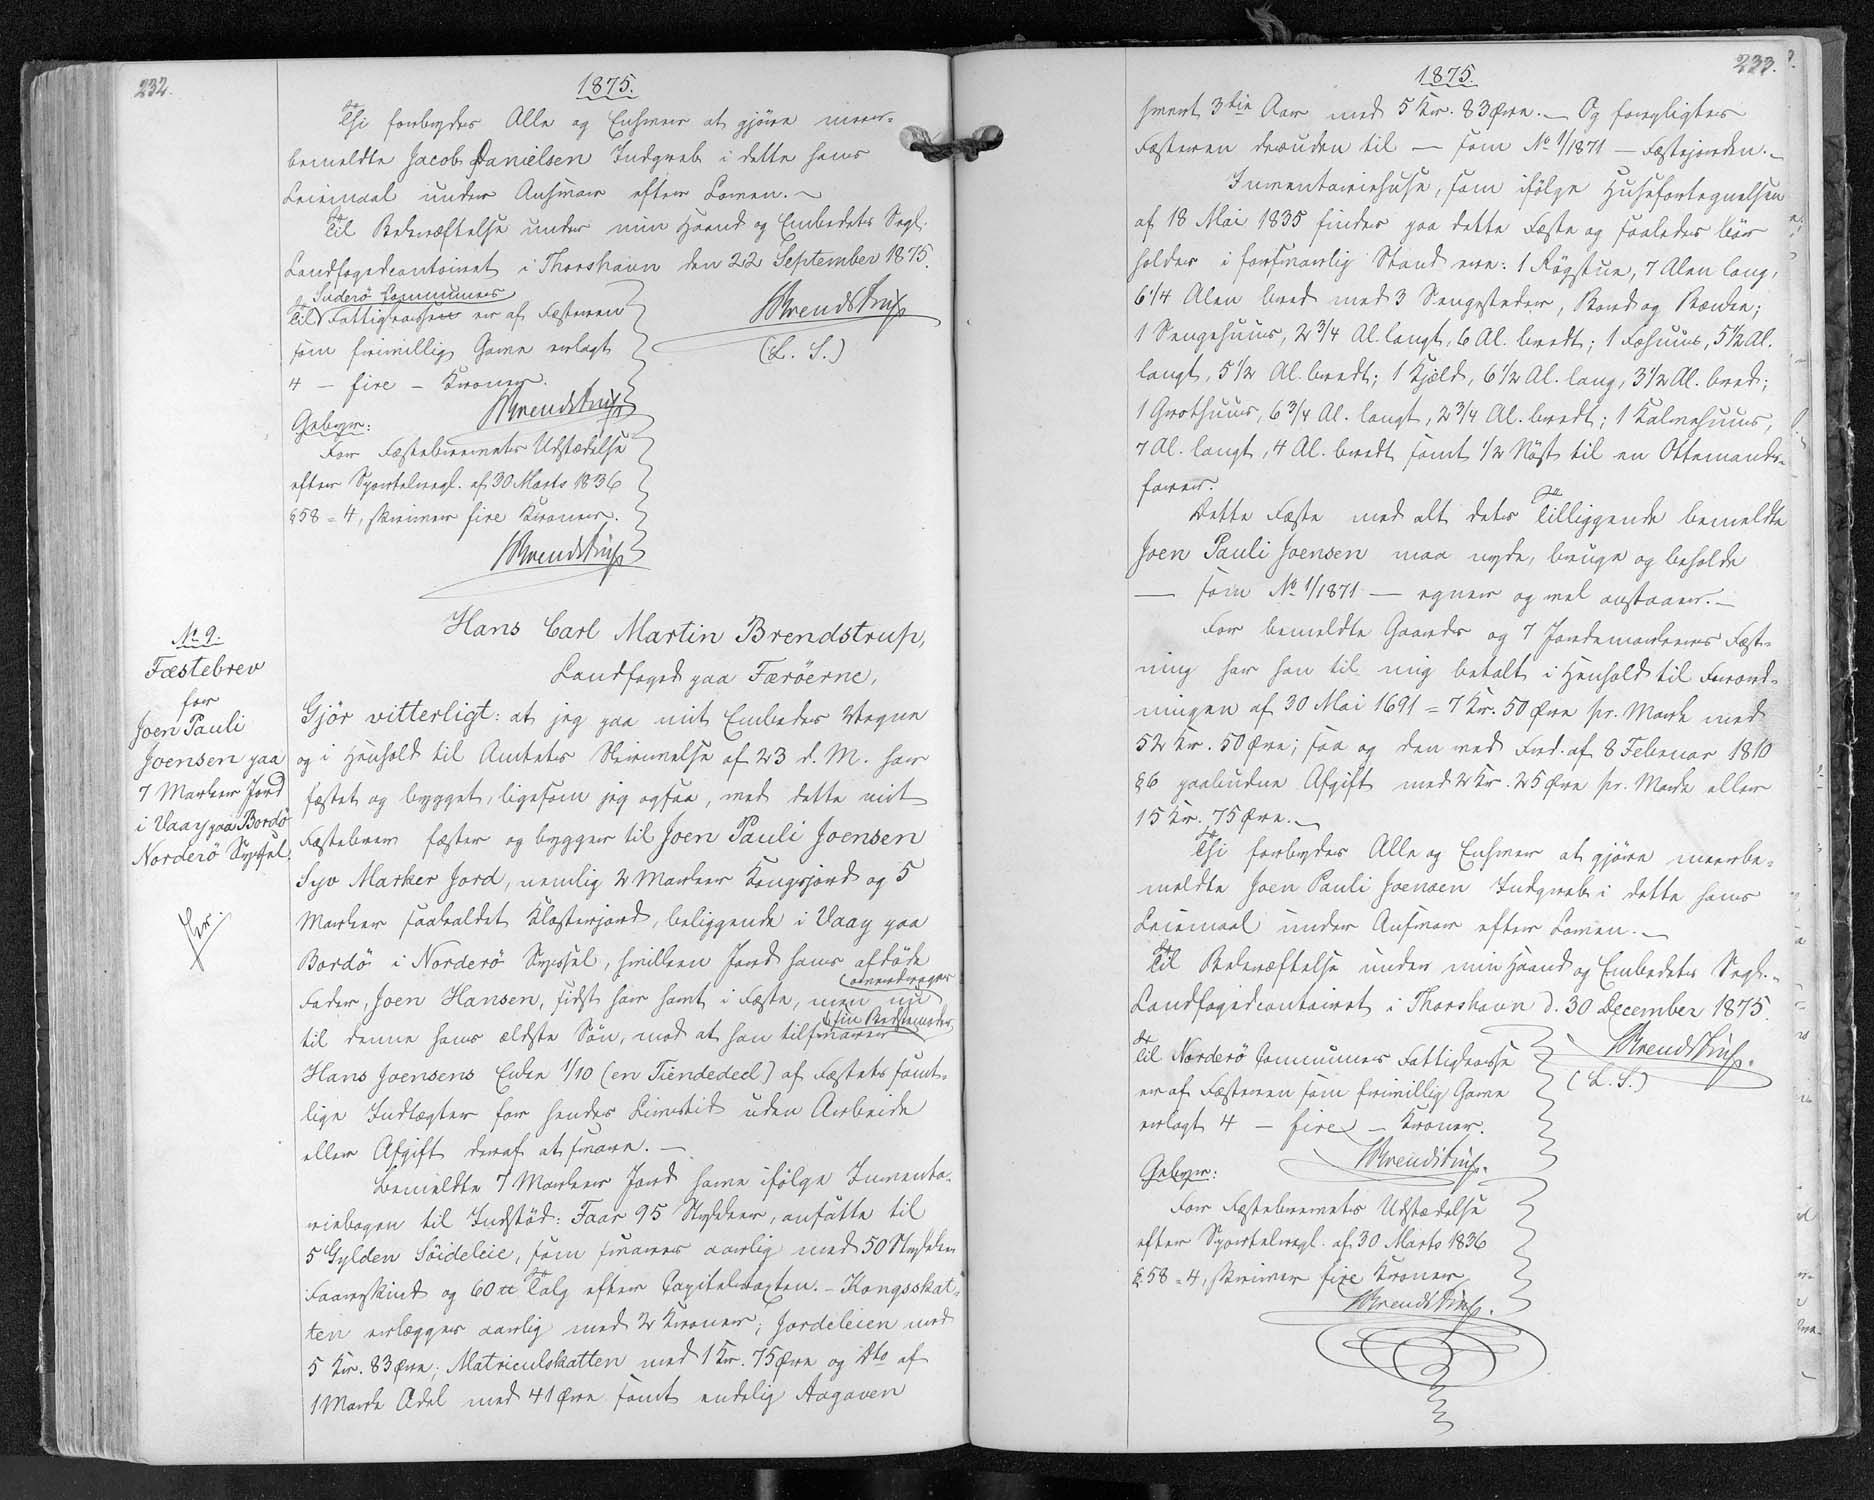 232.
1875.
Thi forbydes Alle og Enhver at gjöre meer-
bemeldte Jacob Danielsen Indgreb i dette hans
Leiemaal under Ansvar efter Loven. ~
Til Bekræftelse under min Haand og Embedets Segl.
Landfogedcontoiret i Thorshavn den 22 September 1875.
Suderö Communes
Til Fattigcassen er af Fæsteren
som frivillig Gave erlagt
4 – fire – Kroner.
Brendstrup
Brendstrup
(L. S.)
Gebyr:
For Fæstebrevets Udstædelse
efter Sportelregl. af 30 Marts 1836
§ 58 = 4, skriver fire Kroner.
Brendstrup
No 9.
Fæstebrev
for
Joen Pauli
Joensen paa
7 Marker Jord
i Vaag paa Bordö
Norderö Syssel.
Hans Carl Martin Brendstrup,
Landfoged paa Færöerne,
Gjör vitterligt: at jeg paa mit Embedes Vegne
og i Henhold til Amtets Skrivelse af 23 d. M. har
fæstet og bygget, ligesom jeg ogsaa, med dette mit
Fæstebrev fæster og bygger til Joen Pauli Joensen
Syv Marker Jord, nemlig 2 Marker Kongsjord og 5
Marker saakaldet Klosterjord, beliggende i Vaag paa
Bordö i Norderö Syssel, hvilken Jord hans afdöde
Fader, Joen Hansen, sidst har havt i Fæste, men nu
overdrages
til denne hans ældste Sön, mod at han tilsvarer
sin Bedstemoder
Hans Joensens Enke 1/10 (en Tiendedeel) af Fæstets samt-
lige Indtægter for hendes Livstid uden Arbeide
eller Afgift deraf at svare. –
Bemeldte 7 Marker Jord have ifölge Inventa-
riebogen til Indstöd: Faar 95 Stykker, ansatte til
5 Gylden Söideleie, som svares aarlig med 50 Stykker
Faareskind og 60 ℔ Talg efter Capitelstaxten. – Kongsskat-
ten erlægges aarlig med 2 Kroner; Jordeleien med
5 Kr. 83 Öre; Matriculskatten med 1 Kr. 75 Öre og Dto af
1 Mark Odel med 41 Öre samt endelig Aagaven
233.
1875.
hvert 3die Aar med 5 Kr. 83 Öre. – Og forpligtes
Fæsteren desuden til – som No 1/1871 – Fæstejorden. –
Inventariehuse, som ifölge Husefortegnelsen
af 18 Mai 1835 findes paa dette Fæste og saaledes bör
holdes i forsvarlig Stand ere: 1 Rögstue, 7 Alen lang,
6 1/4 Alen bred med 3 Sengesteder, Bord og Bænke;
1 Sengehuus, 2 3/4 Al. langt, 6 Al. bredt; 1 Fæhuus, 5 1/2 Al.
langt, 5 1/2 Al. bredt; 1 Kjæld, 6 1/2 Al. lang, 3 1/2 Al. bred;
1 Grothuus, 6 3/4 Al. langt, 2 3/4 Al. bredt; 1 Kalvehuus,
7 Al. langt, 4 Al. bredt samt 1/2 Nöst til en Ottemands-
farer.
Dette Fæste med alt dets Tilliggende bemeldte
Joen Pauli Joensen maa nyde, bruge og beholde
– som No 1/1871 – egner og vel anstaaer. –
For bemeldte Gaards og 7 Jordemarkers Fæst-
ning har han til mig betalt i Henhold til Forord-
ningen af 30 Mai 1691 = 7 Kr. 50 Öre pr. Mark med
52 Kr. 50 Öre; saa og den ved Frd. af 8 Februar 1810
§ 6 paabudne Afgift med 2 Kr. 25 Öre pr. Mark eller
15 Kr. 75 Öre. –
Thi forbydes Alle og Enhver at gjöre meerbe-
meldte Joen Pauli Joensen Indgreb i dette hans
Leiemaal under Ansvar efter Loven. –
Til Bekræftelse under min Haand og Embedets Segl. –
Landfogedcontoiret i Thorshavn d. 30 December 1875.
Til Norderö Communes Fattigcasse
er af Fæsteren som frivillig Gave
erlagt 4 – fire – Kroner.
Brendstrup.
Brendstrup.
(L. S.)
Gebyr:
For Fæstebrevets Udstædelse
efter Sportelregl. af 30 Marts 1836
§ 58 = 4, skriver fire Kroner
Brendstrup.